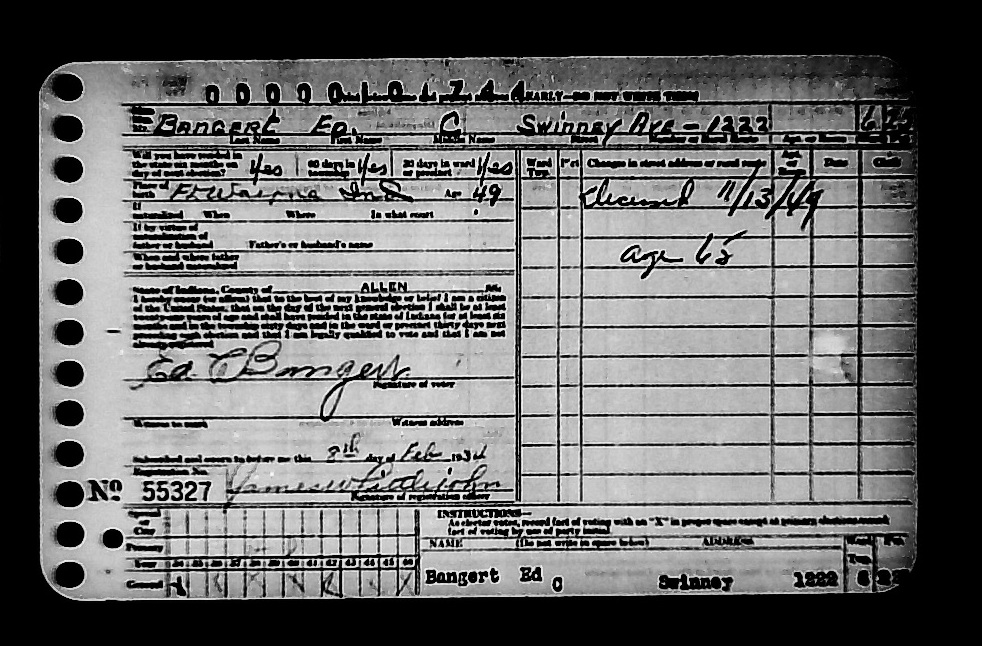 0 0 0 0 0 1 0 1 7 4 4
BANGERT ED. C SWINNEY AVE - 1222 6
Last Name First Name Middle Name Street Number or Rural Route
Will you have resided in the state six months on day of next election? Yes 60 days in township Yes 30 days in ward or precinct Yes
Ward Twp. Pct Changes in street address or rural route Date Clerk
Place of birth Ft Wayne Ind Age 49
Deceased 11/13/49
If naturalized When Where In what court
age 65
If by virtue of naturalization of father or husband Father's or husband's name
When and where father or husband naturalized
State of Indiana, County of ALLEN ,SS.
I hereby swear (or affirm) that to the best of my knowledge or belief I am a citizen
of the United States, that on the day of the next general election I shall be at least
twenty-one years of age and shall have resided in the state of Indiana for at least six
months and in the township sixty days and in the ward or precinct thirty days next
preceding such election and that I am legally qualified to vote and that I am not
already registered
Ed C Bangert
Signature of voter
Witness to mark Witness address
Subscribed and sworn to before me this 8th day of Feb 1934
Registration No.
No 55327
Signature of registration officer
City
Primary
Year 34 35 36 37 38 39 40 41 42 43 44 45 46
General X X X X X X
INSTRUCTIONS—
As elector votes, record fact of voting with an "X" in proper space except at primary elections record
fact of voting by use of party initial.
NAME (Do not write in space below) ADDRESS Ward Pct.
Twp.
Bangert Ed C Swinney 1222 6